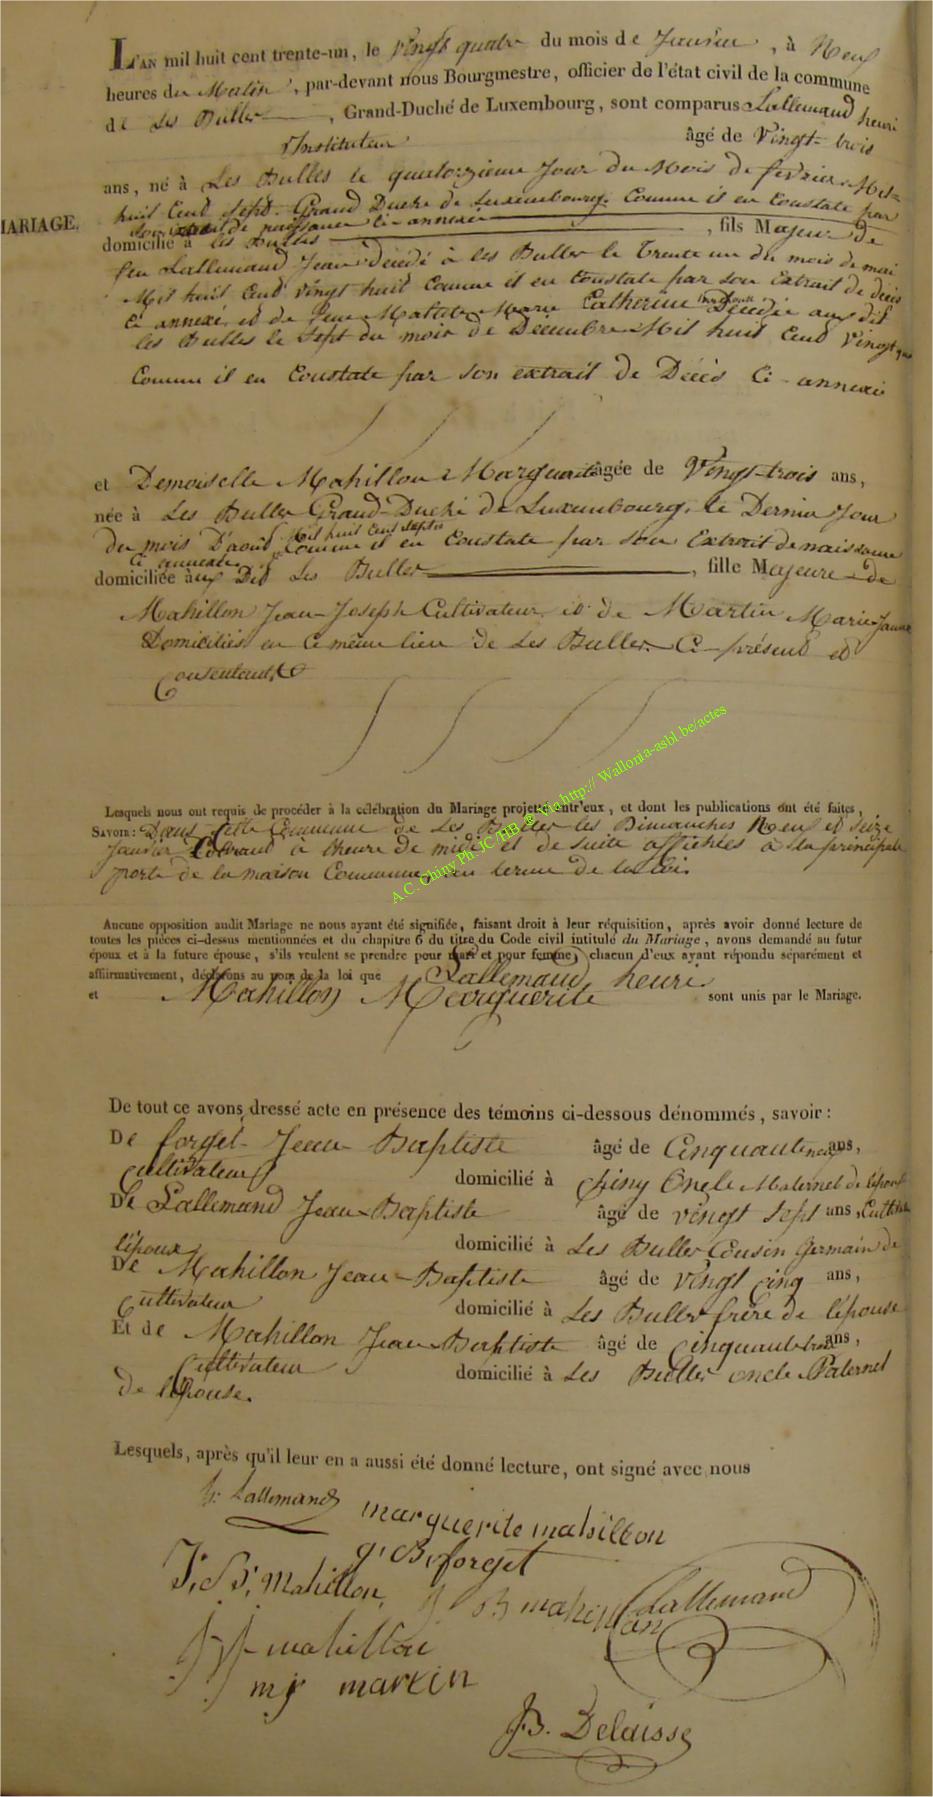 L'AN mil huit cent trente-un, le vingt quatre du mois de Janvier, à Neuf
heures du Matin, par-devant nous Bourgmestre, officier de l'état civil de la commune
de Les Bulles, Grand-Duché de Luxembourg, sont comparus Lallemand henri
Instituteur âgé de Vingt-trois
ans, né à Les Bulles le quatorzieme Jour du Mois de fevrier Mil-
MARIAGE.
huit Cent Sept. Grand Duché de Luxembourg. Comme il en Constate par
son extrait de naissance ci-annexée
domicilié à les Bulles, fils Majeur de
feu Lallemand Jean décédé à les Bulles le Trente un du mois de mai
Mil huit Cent vingt huit Comme il en Constate par son Extrait de décès
Ci annexé, et de feue Marie Catherine Décédée aux dit
les Bulles le Sept du mois de Décembre Mil huit Cent Vingt
Comme il en Constate par son extrait de Décès Ci-annexé
et Demoiselle Mahillon Marguerite âgée de Vingt-trois ans,
née à Les Bulles Grand-Duché de Luxembourg, le Dernier Jour
du mois D'août Mil huit Cent Sept Comme il en Constate par son Extrait de naissance
Ci annexée
domiciliée aux Dit Les Bulles, fille Majeure de
Mahillon Jean-Joseph Cultivateur et de Martin Marie-Jeanne
Domiciliés en Ce même lieu de Les Bulles Ci-présent et
Consentant
Lesquels nous ont requis de procéder à la célébration du Mariage projeté entr'eux, et dont les publications ont été faites,
SAVOIR: Dans Cette Commune de Les Bulles les Dimanches Neuf et Seize
Janvier Courant à l'heure de midi et de suite affichées à la principale
porte de la maison Commune, au terme de la loi.
A.C. Chiny Ph. JC /HB & Via http:// Wallonia-asbl.be/actes
Aucune opposition audit Mariage ne nous ayant été signifiée, faisant droit à leur réquisition, après avoir donné lecture de
toutes les pièces ci-dessus mentionnées et du chapitre 6 du titre du Code civil intitulé du Mariage, avons demandé au futur
époux et à la future épouse, s'ils veulent se prendre pour mari et pour femme, chacun d'eux ayant répondu séparément et
affirmativement, déclarons au nom de la loi que Lallemand henri
et Mahillon Marguerite sont unis par le Mariage.
De tout ce avons dressé acte en présence des témoins ci-dessous dénommés, savoir:
De forget Jean Baptiste âgé de Cinquante ans,
Cultivateur domicilié à Chiny Oncle Maternel de l'épouse
De Lallemand Jean-Baptiste âgé de vingt Sept ans,
domicilié à Les Bulles Cousin Germain de
l'époux
De Mahillon Jean-Baptiste âgé de vingt Cinq ans,
Cultivateur domicilié à Les Bulles frère de l'épouse
Et de Mahillon Jean-Baptiste âgé de Cinquante trois ans,
Cultivateur domicilié à Les Bulles oncle Paternel
de l'épouse.
Lesquels, après qu'il leur en a aussi été donné lecture, ont signé avec nous
h. Lallemand marguerite mahillon
J. B. forget
J. B. Mahillon J B mahillon Lallemand
J J mahillon
m j martin
J.B. Delaisse